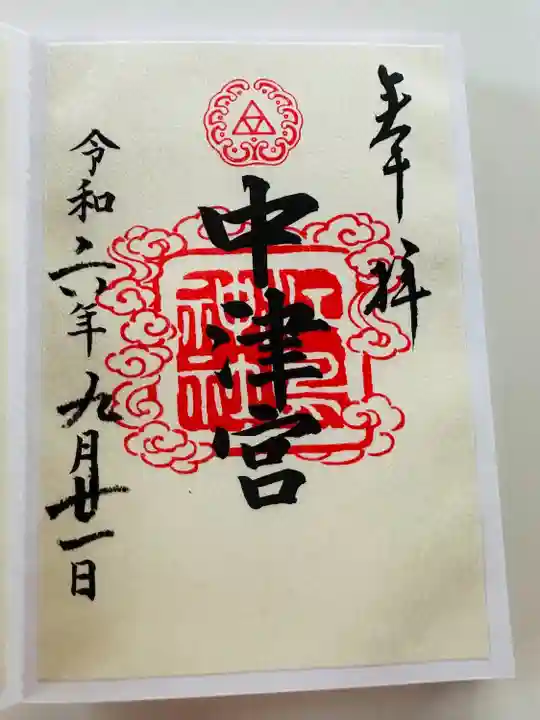 奉拝
中津宮
令和六年九月廿一日